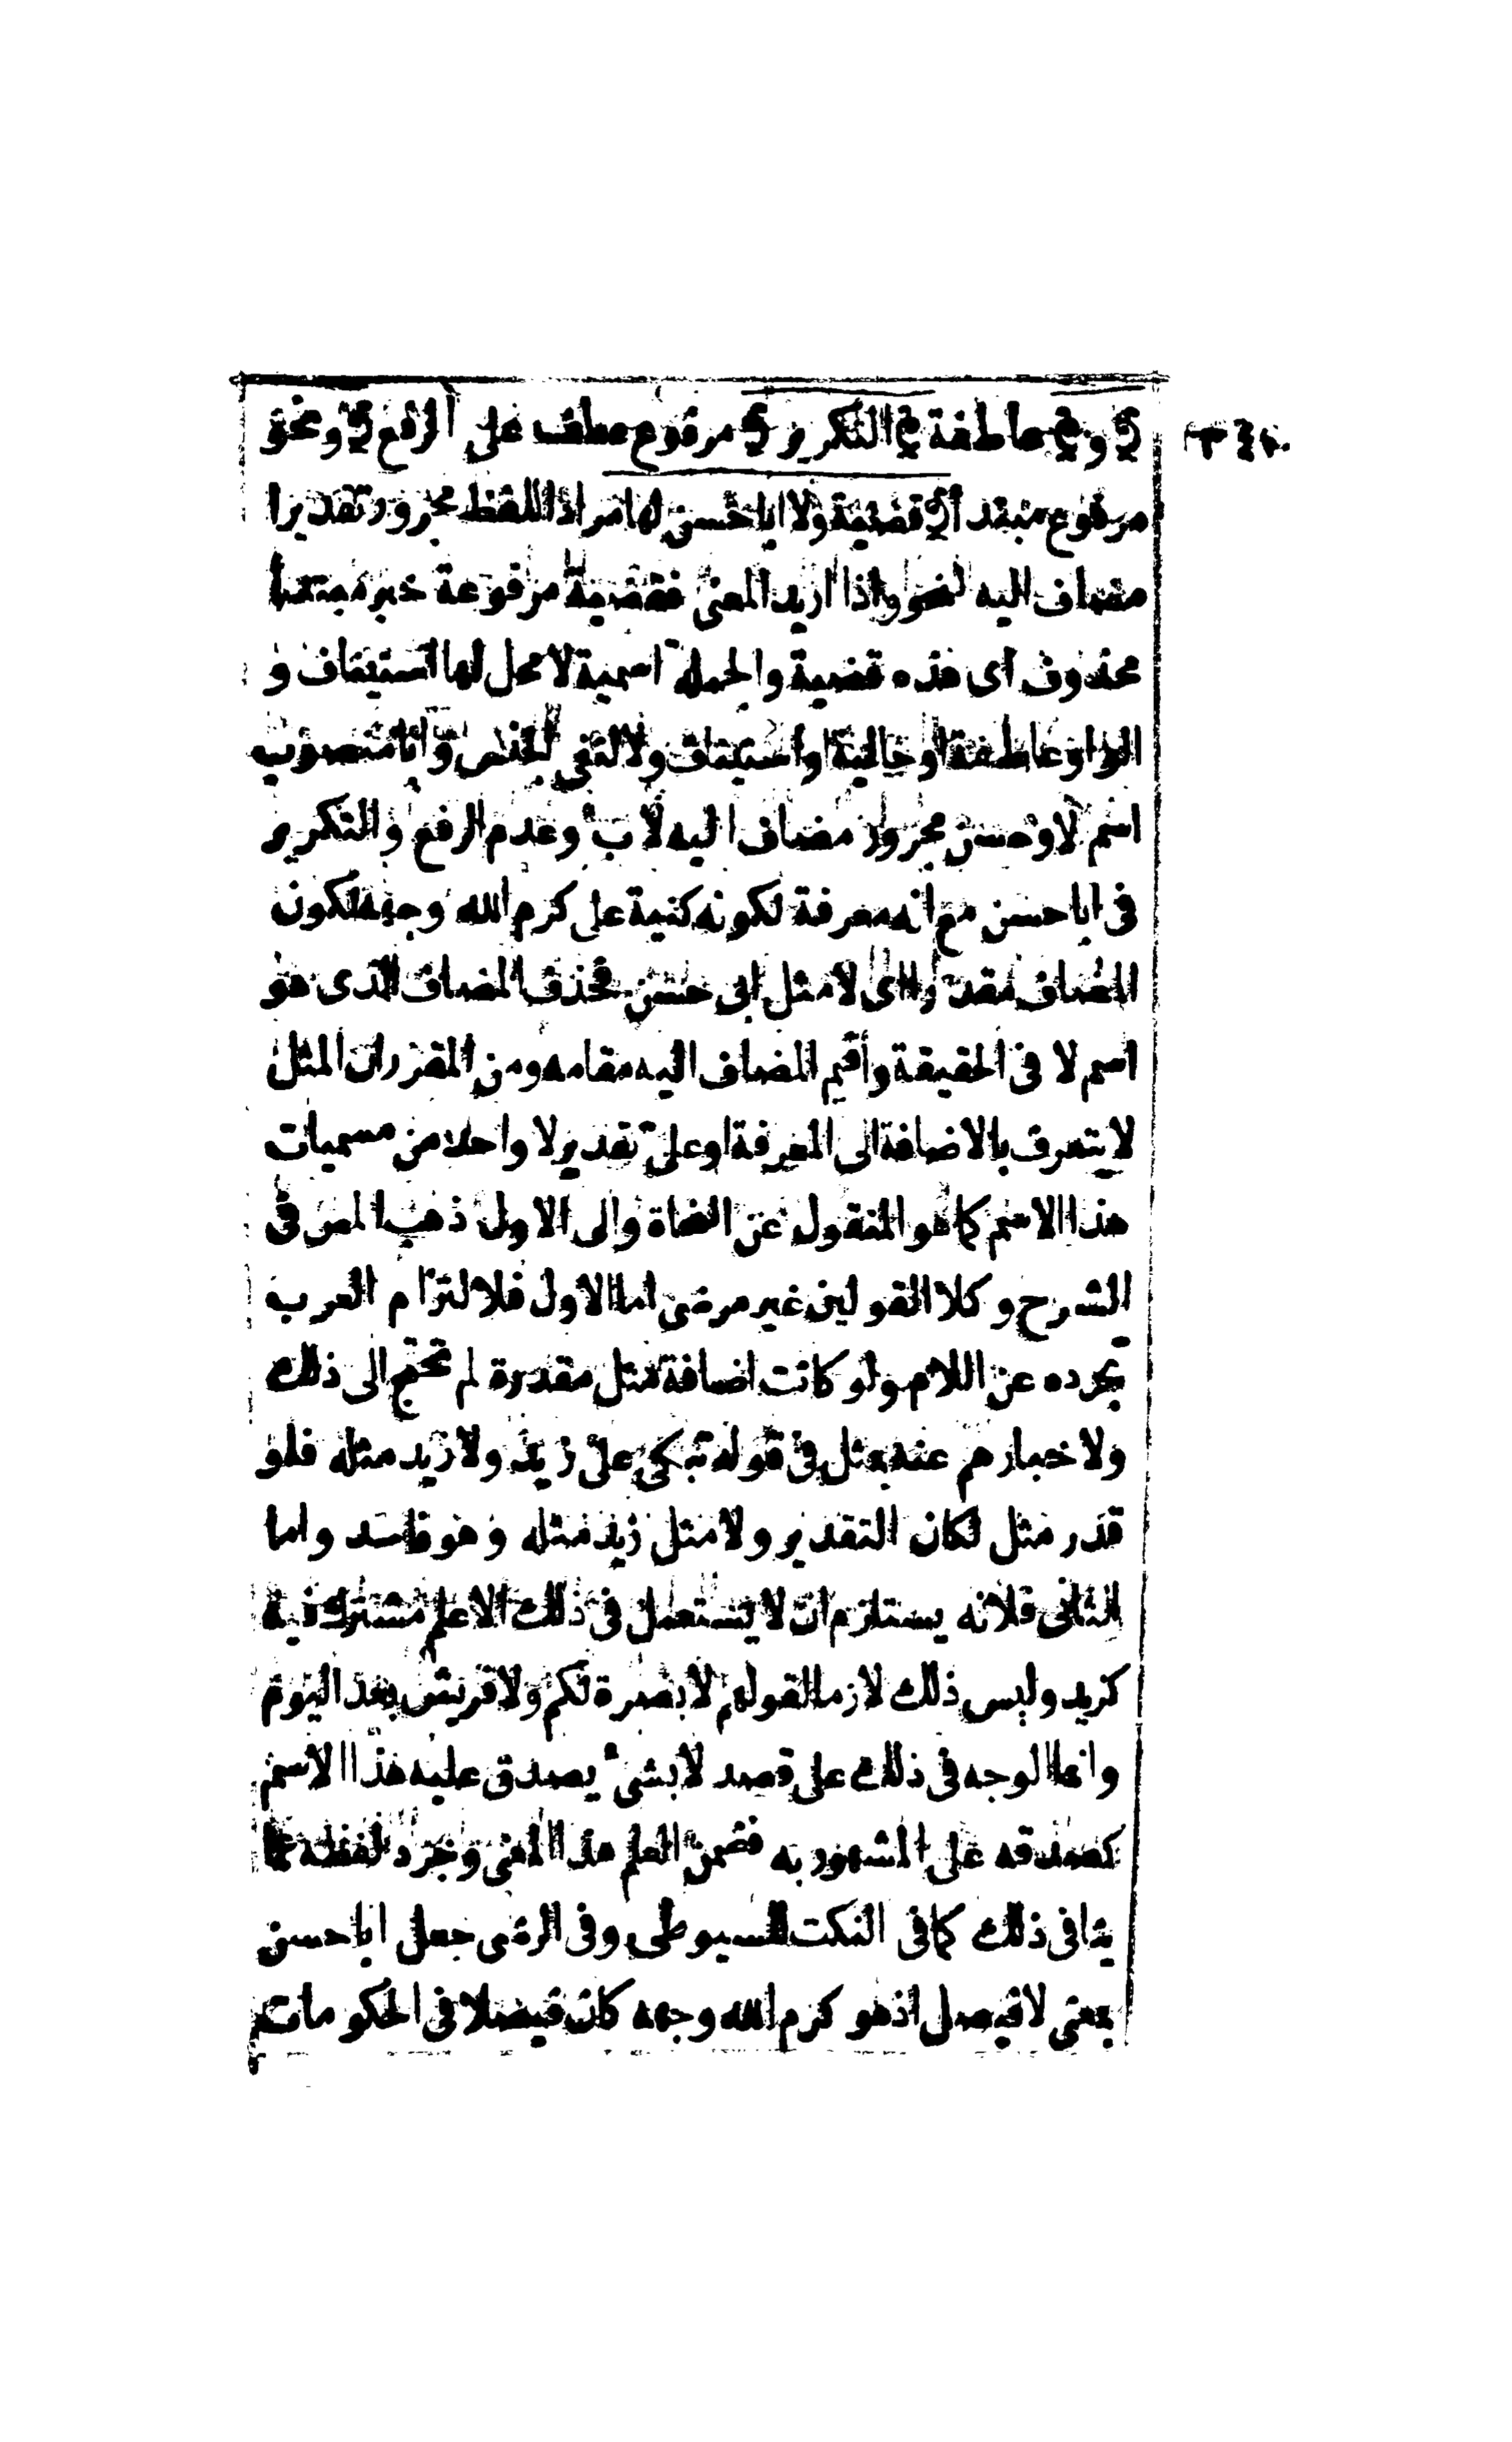 و عاطفة التكرير مرفوع عطف على الرفع و نحو
مرفوع مبتدأ قضية ولا ابا حسن لها مراد اللفظ مجرور تقديرا
مضاف اليه لنحو واذا اريد المعنى فقضية مرفوعة خبر مبتدا
محذوف اى هذه قضية والجملة اسمية لا محل لها استيناف و
الواو عاطفة او حالية او استيناف ولا لنفى الجنس و ابا منصوب
اسم لا وحسن مجرور مضاف اليه لاب وعدم الرفع والتكرير
فى ابا حسن مع انه معرفة لكونه كنية على كرم الله وجهه لكون
المضاف مقدرا اى لا مثل ابى حسن فحذف المضاف الذى هو
اسم لا فى الحقيقة وأقيم المضاف اليه مقامه ومن المقرر ان المثل
لا يتعرف بالاضافة الى المعرفة او على تقدير لا واحدا من مسميات
هذا الاسم كما هو المنقول عن النحاة والى الاول ذهب المص فى
الشرح وكلا القولين غير مرضى اما الاول فلالتزام العرب
تجرده عن اللام ولو كانت اضافة مثل مقدرة لم تحتج الى ذلك
ولاخبارهم عنه بمثل فى قوله تبكى على زيد ولا زيد مثله فلو
قدر مثل لكان التقدير ولا مثل زيد مثله وهو فاسد واما
الثانى فلانه يستلزم ان لا يستعمل فى ذلك الا علم مشترك فيه
كزيد وليس ذلك لازما لقولهم لا بصرة لكم ولا قريش بعد اليوم
وانما الوجه فى ذلك على قصد لا بشئ يصدق عليه هذا الاسم
كصدقه على المشهور به فضمن العلم هذا المعنى وجرد لفظه عما
ينافى ذلك كما فى النكت للسيوطى وفى الرضى جعل ابا حسن
بمعنى لا فيصل اذ هو كرم الله وجهه كان فيصلا فى الحكومات